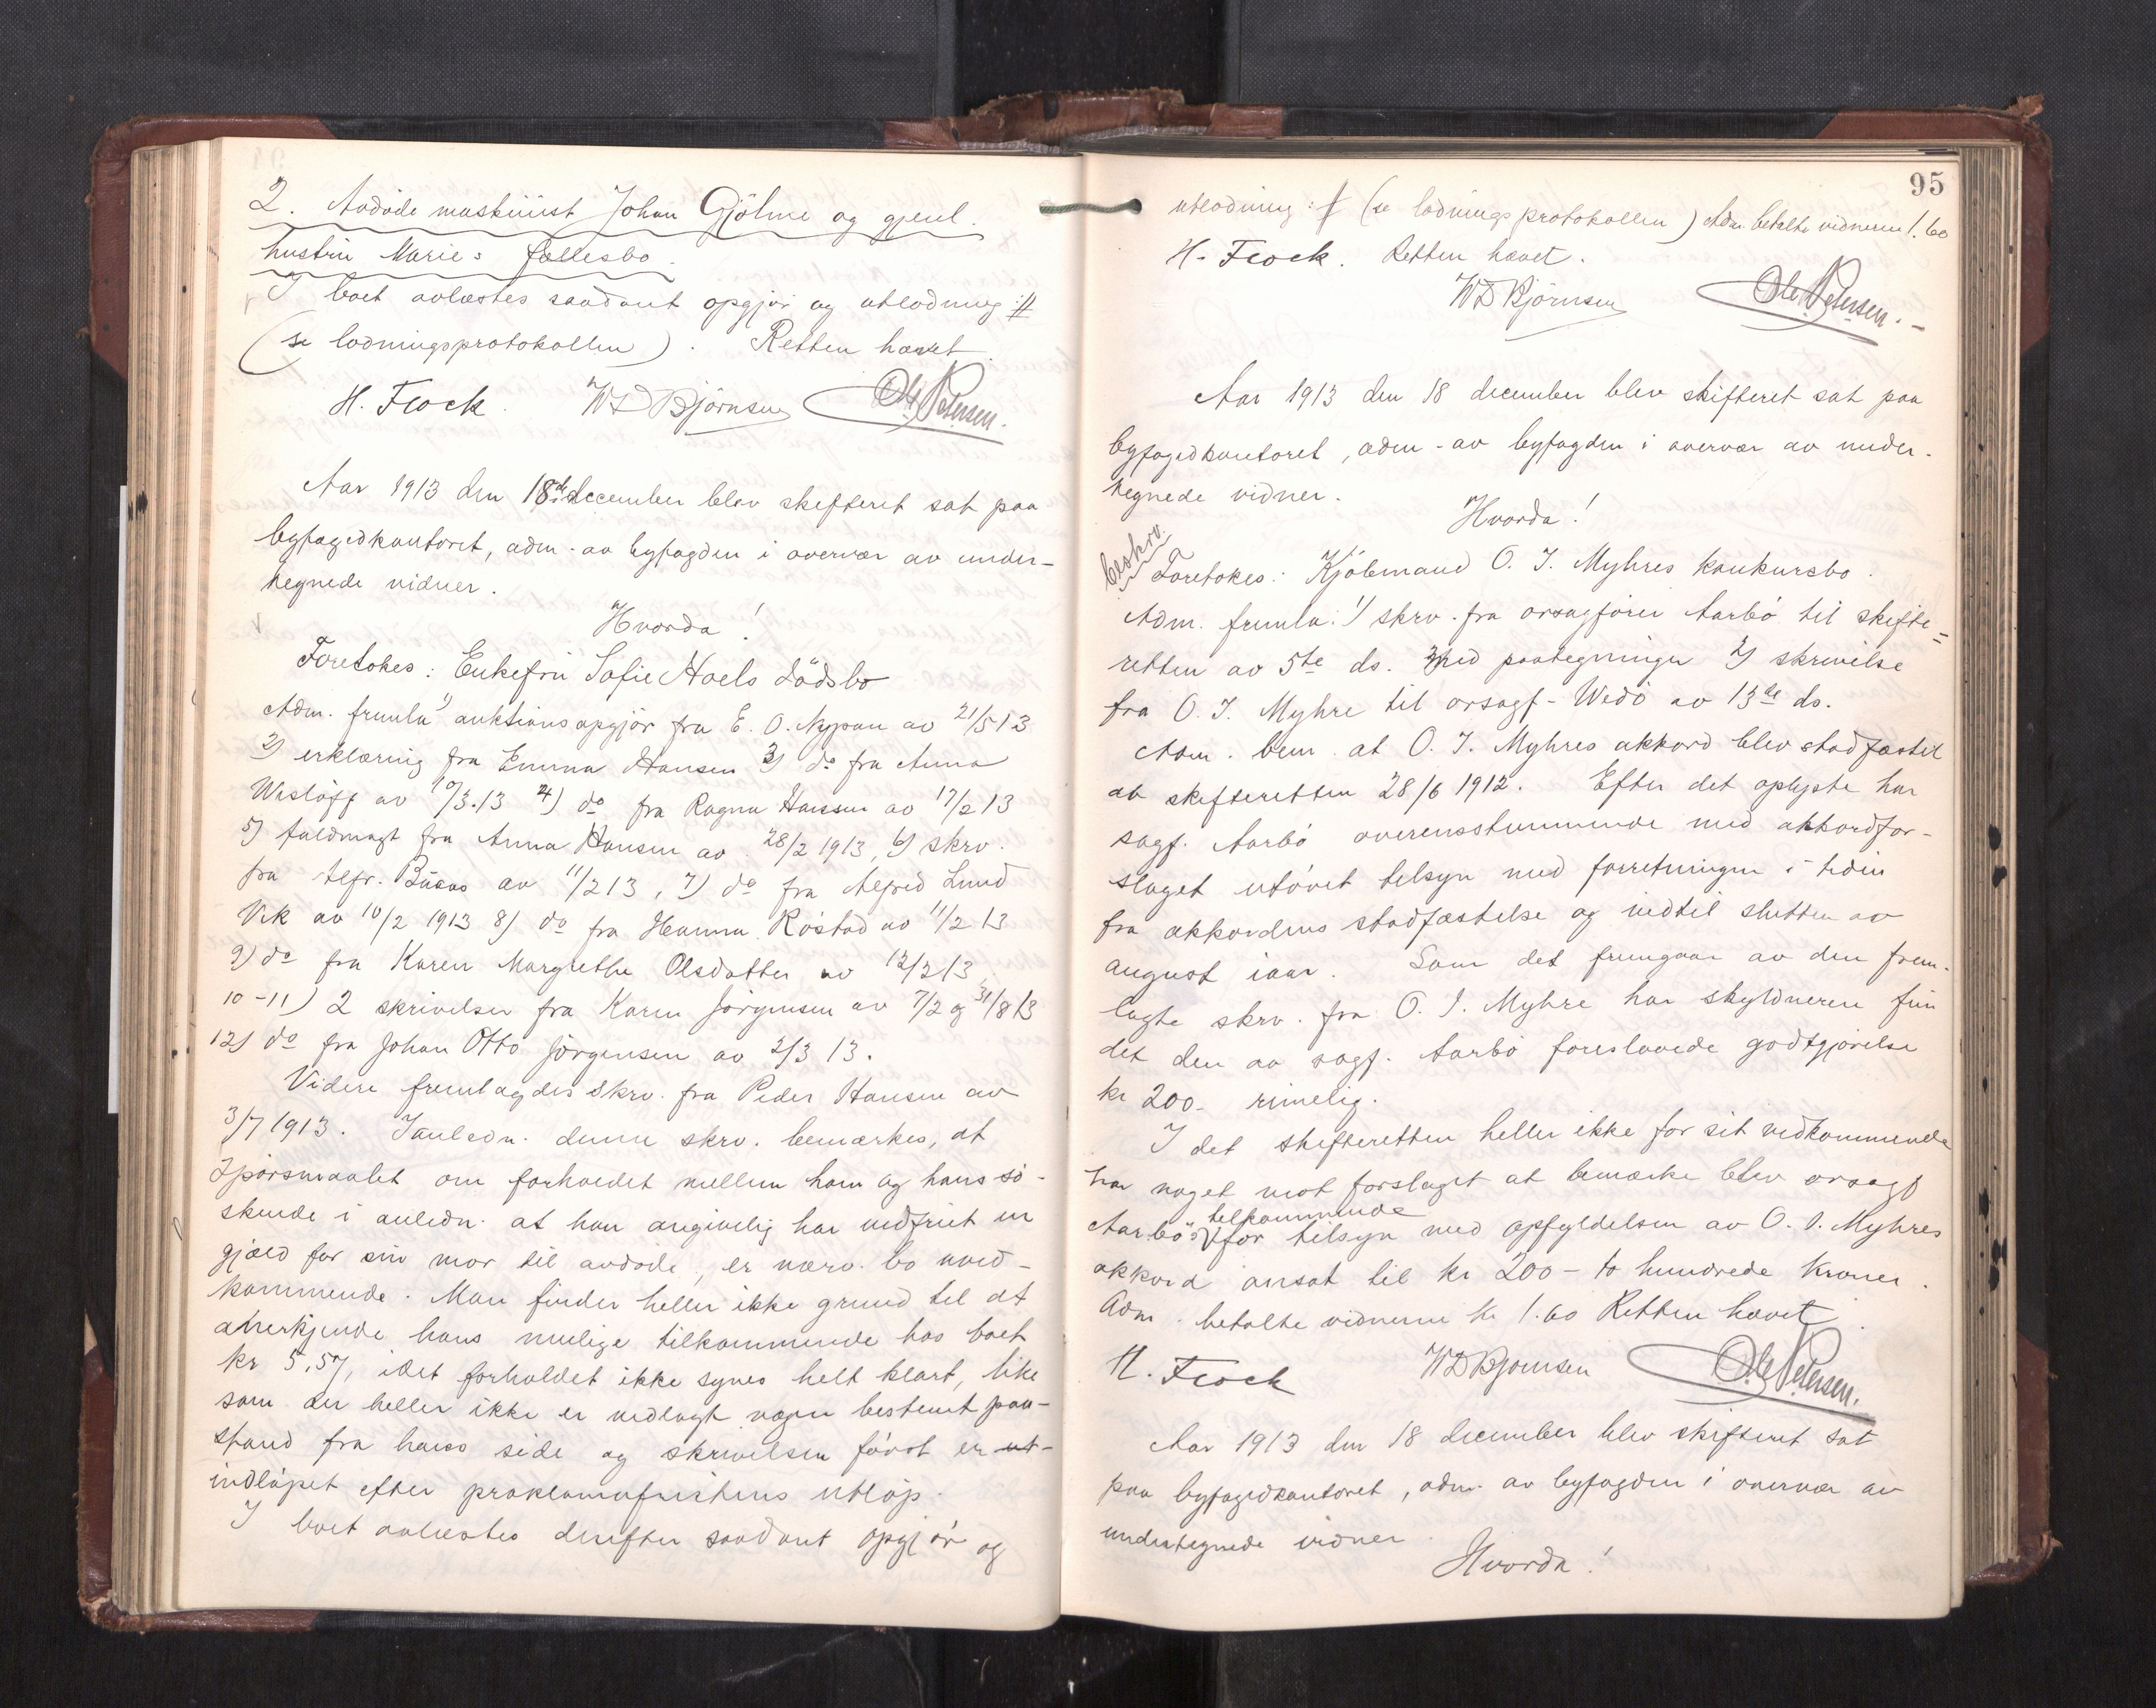 2. Avdöde maskinist Johan Gjölme og gjenl.
hustru Maries fællesbo.
I boet avlæstes saadant opgjör og utlodning :#
(se lodningsprotokollen). Retten hævet.
H. Frock. W D Björnsen Ole Petersen.
Aar 1913 den 18de december blev skifteret sat paa
byfogedkontoret, adm. av byfogden i overvær av under-
tegnede vidner.
Hvorda!
Foretokes: Enkefru Sofie Hoels dödsbo
Adm. fremla 1) auktionsopgjör fra E. O. Nypan av 21/5 13
2) erklæring fra Emma Hansen 3) do fra Anna
Wislöff av 10/3.13 4) do fra Ragna Hansen av 17/2 13
5) fuldmagt fra Anna Hansen av 28/2 1913, 6) skrv.
fra Alfr. Buaas av 11/2 13, 7) do fra Alfred Lund
Vik av 10/2 1913 8) do fra Hanna Röstad av 11/2 13
9) do fra Karen Margrethe Olsdatter av 12/2 13,
10-11) 2 skrivelser fra Karen Jörgensen av 7/2 og 31/8 13
12) do fra Johan Otto Jörgensen av 2/3 13.
Videre fremlagdes skrv. fra Peder Hansen av
3/7 1913. I anledn. denne skrv. bemærkes, at
spörsmaalet om forholdet mellem ham og hans sö-
skende i anledn. at han angivelig har utfriet en
gjæld for sin mor til avdöde, er nærv. bo uved-
kommende. Man finder heller ikke grund til at
anerkjende hans mulige tilkommende hos boet
kr 5,57, idet forholdet ikke synes helt klart, like
som der heller ikke er nedlagt nogen bestemt paa-
stand fra hans side og skrivelsen först er ut-
indlöpet efter proklamafristens utlöp.
I boet avlæstes derefter saadant opgjör og
95
utlodning :# (se lodningsprotokollen) Adm. betalte vidnerne 1.60
H. Frock. Retten hævet.
W D Björnsen Ole Petersen.-
Aar 1913 den 18 december blev skifteret sat paa
byfogedkontoret, adm. av byfogden i overvær av under-
tegnede vidner.
Hvorda!
beskrv.
Foretokes: Kjöbmand O. J. Myhres konkursbo.
Adm. fremla: 1) skrv. fra orsagförer Aarbö til skifte-
retten av 5te ds. med paategninger 2) skrivelse
fra O. J. Myhre til orsagf. Wedö av 13de ds.
Adm. bem. at O. J. Myhres akkord blev stadfæstet
av skifteretten 28/6 1912. Efter det oplyste har
sagf. Aarbö overensstemmende med akkordfor-
slaget utövet tilsyn med forretningen i tiden
fra akkordens stadfæstelse og indtil slutten av
august iaar. Som det fremgaar av den frem-
lagte skrv. fra O. J. Myhre har skyldneren fun
det den av sagf. Aarbö foreslaaede godtgjörelse
kr 200- rimelig.
I det skifteretten heller ikke for sit vedkommende
har noget mot forslaget at bemærke blev orsagf
tilkommende
Aarbö's for tilsyn med opfyldelsen av O. J. Myhres
akkord ansat til kr 200 - to hundrede kroner.
Adm. betalte vidnerne kr 1.60 Retten hævet.
H. Frock W D Bjørnsen Ole Petersen.
Aar 1913 den 18 december blev skifteret sat
paa byfogedkontoret, adm. av byfogden i overvær av
undertegnede vidner.
Hvorda!